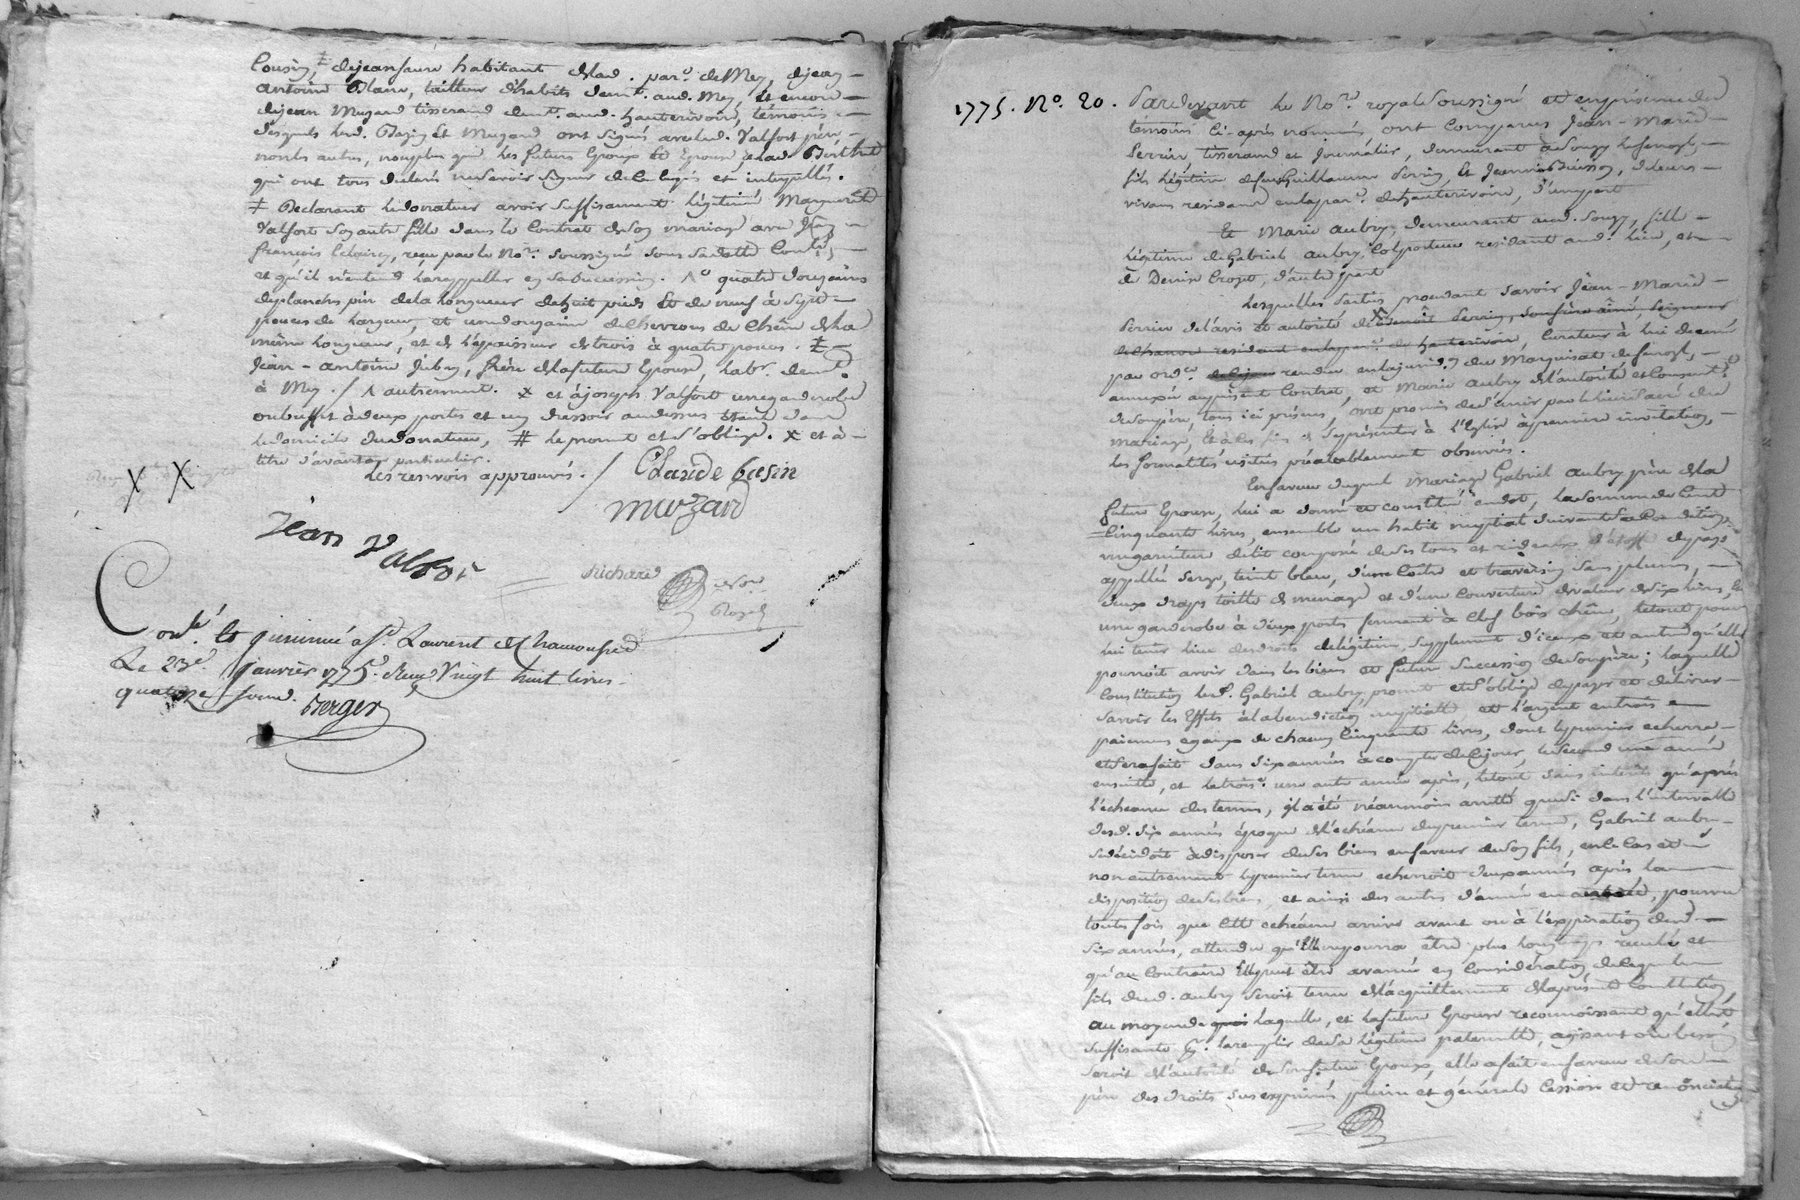 Cousin, ≠ de jean faure habitant de lad. par.e de Mey, de jean
antoine Blanc, tailleur d'habits dem.t aud. Mey, et encore
de jean Mugand tisserand dem.t aud. hauterivoire, témoins
desquels lesd. Bazin et Mugand ont signés avec led. Valfort père
non les autres, non plus que les futurs Epoux et Epouse
qui ont tous declarés ne savoir signer de ce enquis et interpellés.
≠ Declarant le donateur avoir suffisament légitimé Marguerite
Valfort son autre fille dans le Contrat de son mariage avec
françois reçu par le No.re soussigné sous sa datte Contlé,
et qu'il n'entend la rappeller en sa succession. quatre douzaines
de planches pin de la longueur de huit pieds et de neuf à
pouces de largeur, et une douzaine de chevrons de chêne de la
même longueur, et de l'épaisseur de trois à quatre pouces. ≠
Jean-antoine frère de la future Epouse, lab.r dem.t
à Mey. / ^ autrement. x et à joseph Valfort une garderobe
ou buffet à deux portes et un dressoir au dessus étant dans
le domicile du donateur, # le promet et s'oblige. x et à
titre d'avantage particulier.
les renvois approuvés. / Claude basin
X X
muzard
Jean Valfor
Richard
No.re
Royal
Con.lé et insinué à S.t Laurent de Chamousset
Le 23e. janvier 1775. Reçu Vingt huit livres
quatorze sous. Berger
1775. No. 20. Pardevant le No.re royal soussigné et en présence des
témoins ci-après nommés ont comparus Jean-Marie
Perrin, tisserand et journalier, demeurant à Souzy
fils légitime de feu Guillaume Perrin, et Jeanne Buisson, de leurs
vivans residans en la par.e de hauterivoire, d'une part
Et Marie aubry, demeurant aud. Souzy, fille
légitime de Gabriel aubry, Colporteur residant aud. lieu, et
de Denise Crozet, d'autre part
Lesquelles parties procedant savoir Jean-Marie
Perrin de l'avis et autorité de x benoit Perrin, son frère ainé, peigneur
de chanvre residant en la par.e de hauterivoire, Curateur à lui decerné
par ord.ce rendue en la jurid.on du Marquisat de
annexée au présent Contrat, et Marie aubry de l'autorité et consent.t
de son père, tous ici présens, ont promis de s'unir par le lien sacré du
mariage, et à ces fins de se présenter à l'Eglise à premiere invitation,
les formalités usitées préalablement observées.
En faveur duquel mariage Gabriel aubry père de la
future Epouse, lui a donné et constitué en dot, la somme de Cent
Cinquante livres, ensemble un habit nuptial suivant sa Condition,
une garniture de lit composé de ses tours et rideaux d'etoffe du pays
appellée serge, teint bleu, d'une Coitre et traversin sans plumes,
deux draps toille de menage et d'une Couverture de valeur de six livres,
une garderobe à deux portes fermant à clef bois chêne, le tout pour
lui tenir lieu de droits de légitime, supplement d'iceux et autres qu'elle
pourroit avoir dans les biens et future Succession de son père; laquelle
Constitution led. Gabriel aubry promet et s'oblige de payer et délivrer
savoir les effets à la benediction nuptialle et l'argent en trois
paiemens egaux de chacun Cinquante livres, dont le premier echerra
et sera fait dans six années à compter de ce jour, le second une année
ensuitte, et le trois.e une autre année après, le tout sans interêts qu'après
l'echeance des termes, il a été néanmoins arrêté que si dans l'intervalle
desd. six années époque de l'echéance du premier terme, Gabriel aubry
se décidoit à disposer de ses biens en faveur de son fils, en ce cas et
non autrement le premier terme echerroit deux années après la
disposition de ses biens, et ainsi des autres d'année en année, pourvu
toutes fois que cette echéance arrive avant ou à l'expiration desd.
six années, attendu qu'elle ne pourra être plus longtems reculée et
qu'au contraire elle peut être avancée en considération de ce que le
fils dud. aubry seroit tenu de l'acquittement de la présente constitution,
au moyen de quoi laquelle, et la future Epouse reconnoissant qu'elle est
suffisante p.r la remplir de sa légitime paternelle, agissant où besoin
seroit de l'autorité de son futur Epoux, elle a fait en faveur de son
père des droits sus exprimés pleine et générale Cession et renonciation